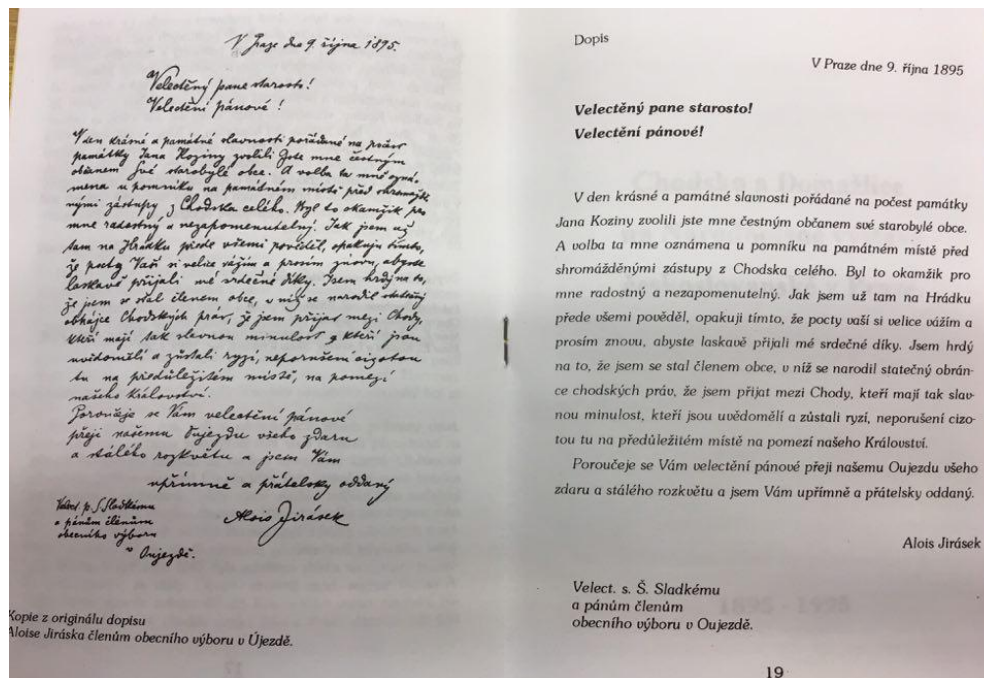 V Praze dne 9. října 1895.
Velectěný pane starosto!
Velectění pánové!
V den krásné a památné slavnosti pořádané na počest
památky Jana Koziny zvolili jste mne čestným
občanem své starobylé obce. A volba ta mně ozná-
mena u pomníku na památném místě před shromáždě-
nými zástupy z Chodska celého. Byl to okamžik pro
mne radostný a nezapomenutelný. Jak jsem už
tam na Hrádku přede všemi pověděl, opakuji tímto,
že pocty Vaší si velice vážím a prosím znovu, abyste
laskavě přijali mé srdečné díky. Jsem hrdý na to,
že jsem se stal členem obce, v níž se narodil statečný
obhájce Chodských práv, že jsem přijat mezi Chody,
kteří mají tak slavnou minulost a kteří jsou
uvědomělí a zůstali ryzí, neporušení cizotou
tu na předůležitém místě, na pomezí
našeho Království.
Poroučeje se Vám velectění pánové
přeji našemu Oujezdu všeho zdaru
a stálého rozkvětu a jsem Vám
upřímně a přátelsky oddaný
Alois Jirásek
Sladkému
a pánům členům
obecního výboru
v Oujezdě.
Kopie z originálu dopisu
Aloise Jiráska členům obecního výboru v Újezdě.
Dopis
V Praze dne 9. října 1895
Velectěný pane starosto!
Velectění pánové!
V den krásné a památné slavnosti pořádané na počest památky
Jana Koziny zvolili jste mne čestným občanem své starobylé obce.
A volba ta mne oznámena u pomníku na památném místě před
shromážděnými zástupy z Chodska celého. Byl to okamžik pro
mne radostný a nezapomenutelný. Jak jsem už tam na Hrádku
přede všemi pověděl, opakuji tímto, že pocty vaší si velice vážím a
prosím znovu, abyste laskavě přijali mé srdečné díky. Jsem hrdý
na to, že jsem se stal členem obce, v níž se narodil statečný obrán-
ce chodských práv, že jsem přijat mezi Chody, kteří mají tak slav-
nou minulost, kteří jsou uvědomělí a zůstali ryzí, neporušení cizo-
tou tu na předůležitém místě na pomezí našeho Království.
Poroučeje se Vám velectění pánové přeji našemu Oujezdu všeho
zdaru a stálého rozkvětu a jsem Vám upřímně a přátelsky oddaný.
Alois Jirásek
Velect. s. Š. Sladkému
a pánům členům
obecního výboru v Oujezdě.
19